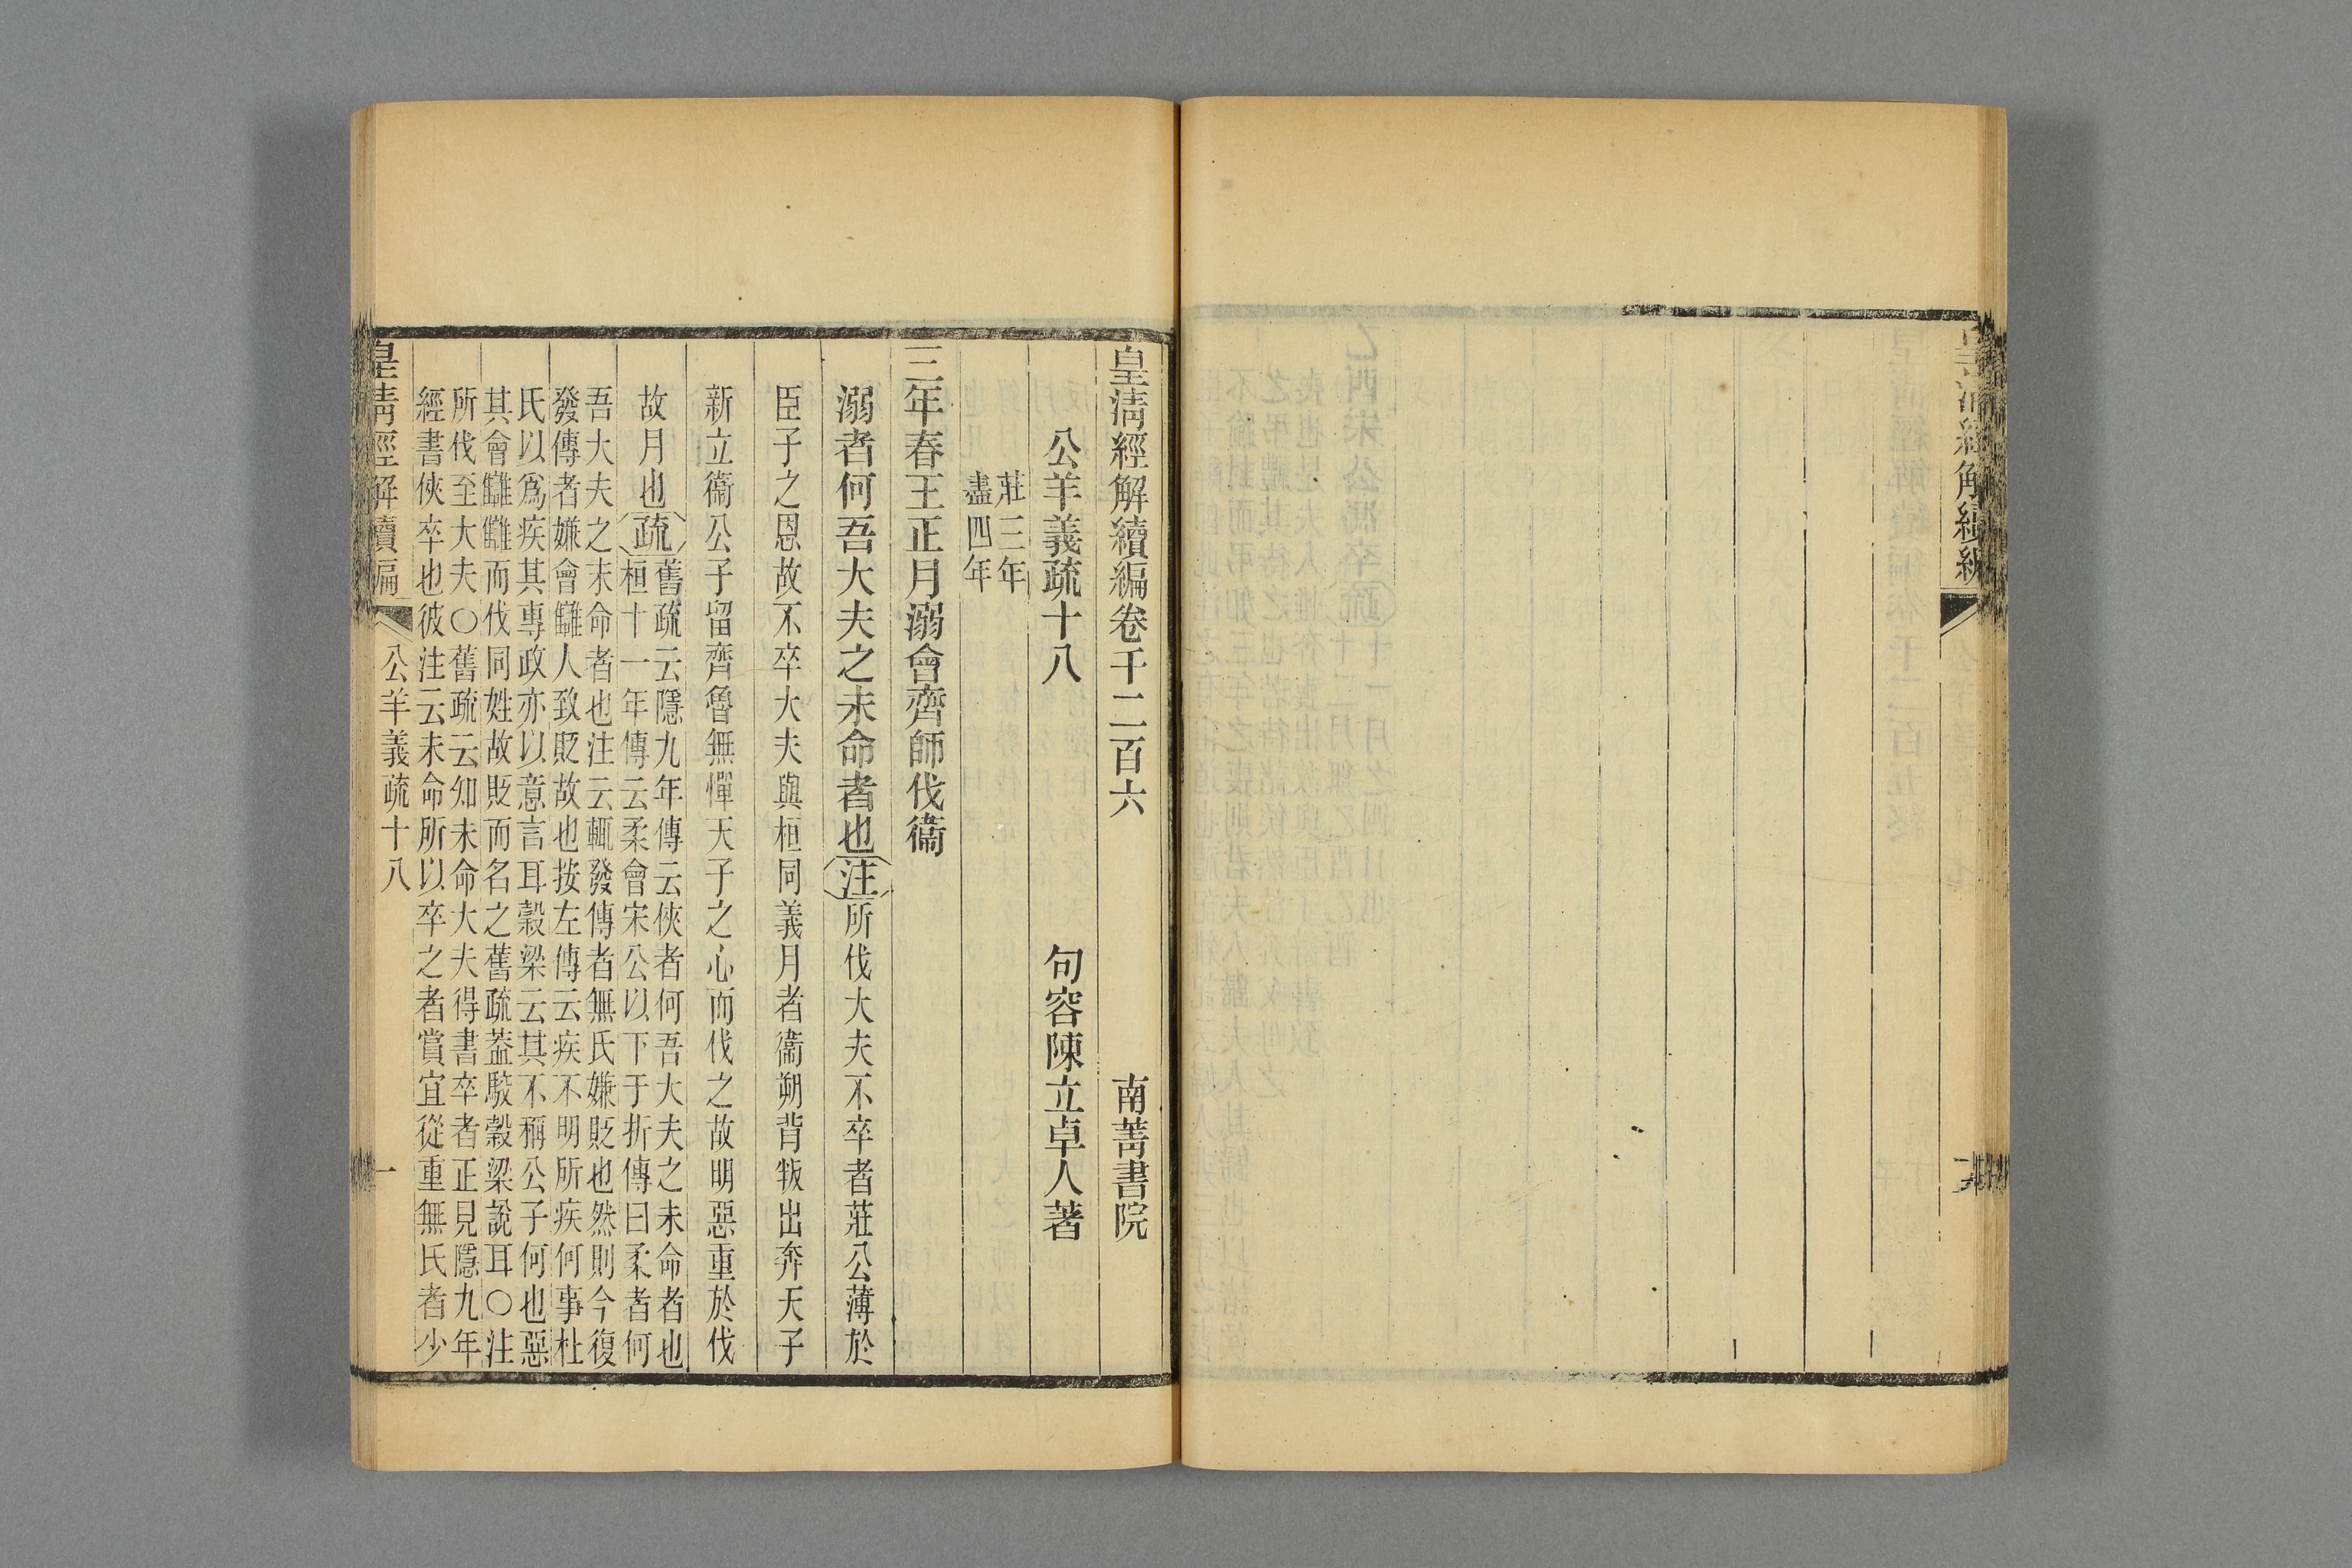 皇清經解續編
皇清經解續編卷千二百六
南菁書院
公羊義疏十八
句容陳立卓人著
莊三年
盡四年
三年春王正月溺會齊師伐衞
溺者何吾大夫之未命者也注所伐大夫不卒者莊公薄於
臣子之恩故不卒大夫與桓同義月者衞朔背叛出奔天子
新立衞公子留齊魯無憚天子之心而伐之故明惡重於伐
故月也疏
舊疏云隱九年傳云俠者何吾大夫之未命者也
桓十一年傳云柔會宋公以下于折傳曰柔者何
吾大夫之未命者也注云輒發傳者無氏嫌貶也然則今復
發傳者嫌會讎人致貶故也按左傳云疾不明所疾何事杜
氏以爲疾其專政亦以意言耳穀梁云其不稱公子何也惡
其會讎讎而伐同姓故貶而名之舊疏葢駁穀梁說耳〇注
所伐至大夫〇舊疏云知未命大夫得書卒者正見隱九年
經書俠卒也彼注云未命所以卒之者賞宜從重無氏者少
皇清經解續編
公羊義疏十八
一